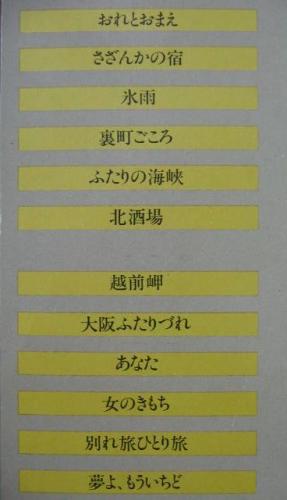 おれとおまえ
さざんかの宿
氷雨
裏町ごころ
ふたりの海峡
北酒場
越前岬
大阪ふたりづれ
あなた
女のきもち
別れ旅ひとり旅
夢よ、もういちど